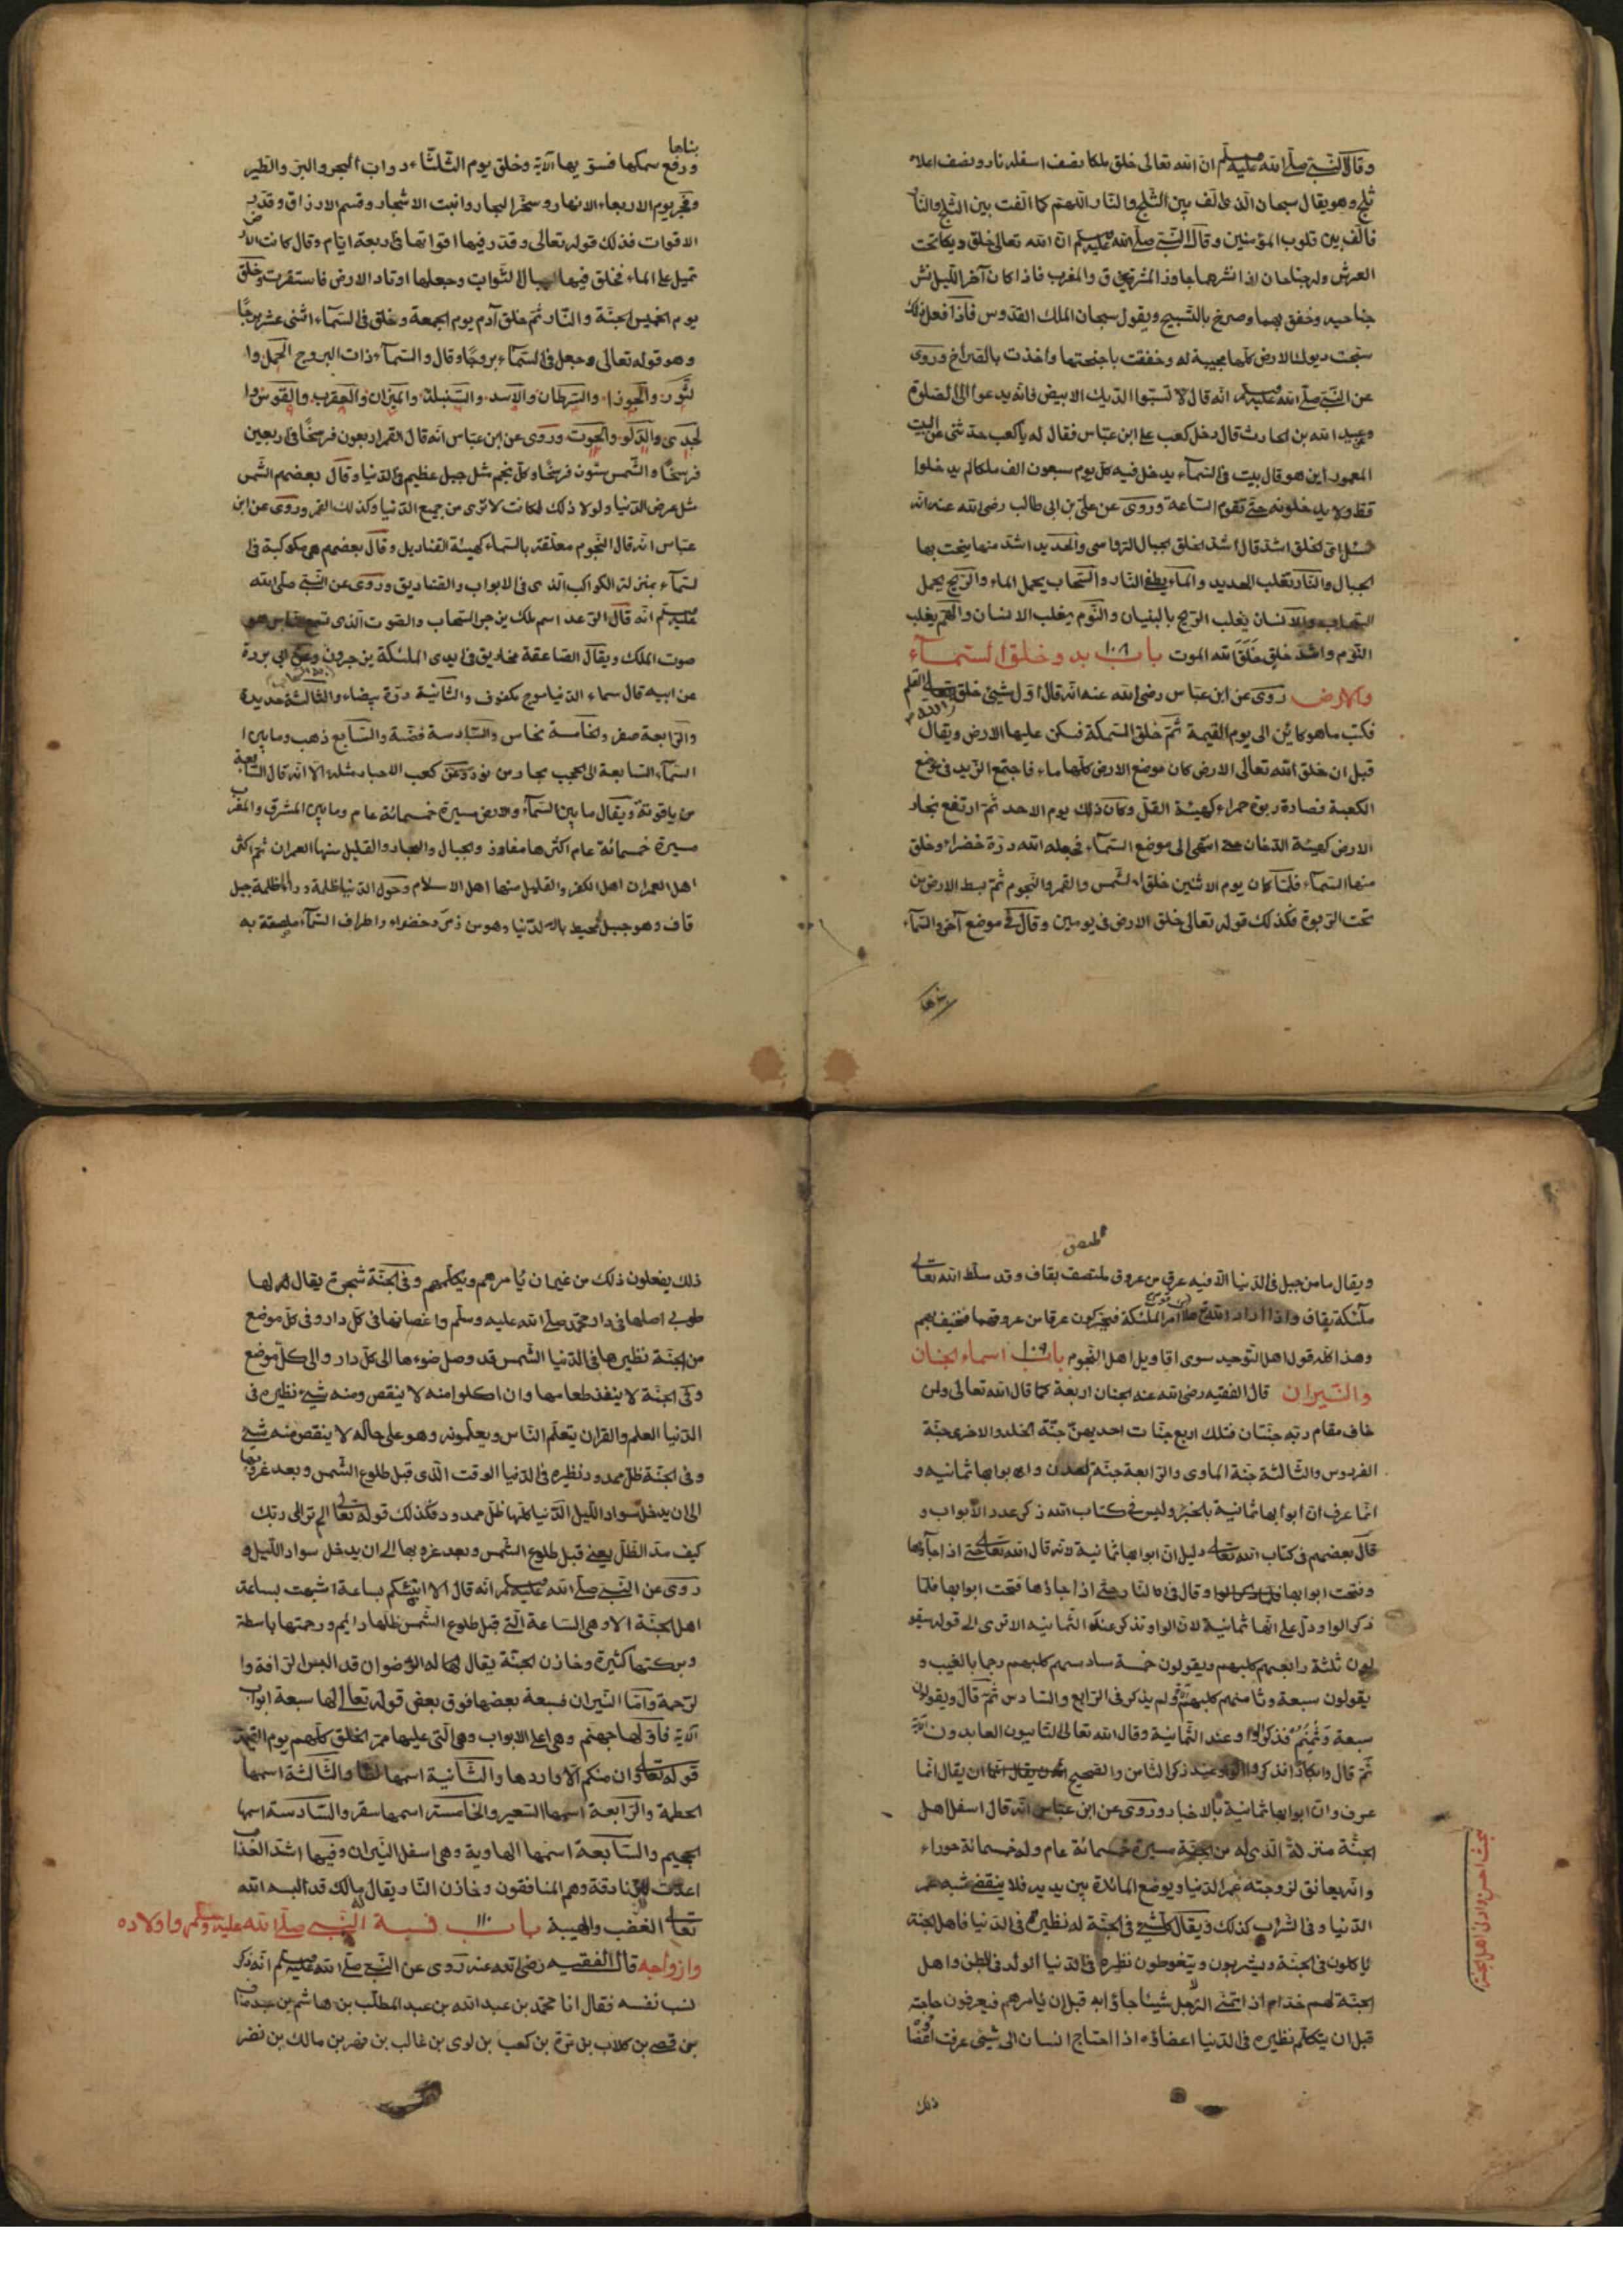 وقال النبي صلى الله عليه وسلم ان الله تعالى خلق ملكا نصف اسفله نار ونصف اعلاه
ثلج وهو يقول سبحان الذى الف بين الثلج والنار اللهم كما الفت بين الثلج والنار
فالف بين قلوب المؤمنين وقال النبي صلى الله عليه وسلم ان الله تعالى خلق ديكا تحت
العرش وله جناحان اذا نشرهما جاوز المشرق والمغرب فاذا كان آخر الليل نشر
جناحيه وخفق بهما وصرخ بالتسبيح ويقول سبحان الملك القدوس فاذا فعل ذلك
سبحت ديوك الارض كلها مجيبة له وخفقت باجنحتها واخذت بالصراخ وروى
عن النبي صلى الله عليه وسلم انه قال لا تسبوا الديك الابيض فانه يدعوا الى الصلوة
وعبد الله بن الحارث قال دخل كعب على ابن عباس فقال له يا كعب حدثنى عن البيت
المعمور اين هو قال بيت فى السماء يدخل فيه كل يوم سبعون الف ملكا لم يدخلوا
قط ولا يدخلونه حتى تقوم الساعة وروى عن على بن ابى طالب رضى الله عنه انه
سئل اى الخلق اشد قال اشد الخلق الجبال الرواسى والحديد اشد منها ينحت بها
الجبال والنار تغلب الحديد والماء يطفى النار والسحاب يحمل الماء والريح يحمل
السحاب والانسان يغلب الريح بالبنيان والنوم يغلب الانسان والهم يغلب
النوم واشد خلق خلق الله الموت باب ١٠٨ بدو خلق السماء
والارض روى عن ابن عباس رضى الله عنه انه قال اول شيئ خلق الله تعالى القلم
فكتب ما هو كائن الى يوم القيمة ثم خلق السمكة فسكن عليها الارض ويقال
قبل ان خلق الله تعالى الارض كان موضع الارض كلها ماء فاجتمع الزبد فى موضع
الكعبة فصارة ربوة حمراء كهيئة التل وكان ذلك يوم الاحد ثم ارتفع بخار
الارض كهيئة الدخان حتى انتهى الى موضع السماء فجعله الله درة خضراء وخلق
منها السماء فلما كان يوم الاثنين خلق الشمس والقمر والنجوم ثم بسط الارض من
تحت الربوة فكذلك قوله تعالى خلق الارض فى يومين وقال فى موضع آخر والسماء
بناها
بناها
ورفع سمكها فسويها الآية وخلق يوم الثلثاء دواب البحر والبر والطير
وفجر يوم الاربعاء الانهار وسخر البحار وانبت الاشجار وقسم الارزاق وقدر
الاقوات فذلك قوله تعالى وقدر فيها اقواتها فى اربعة ايام وقال كانت الارض
تميل على الماء فخلق فيها الجبال الثوابت وجعلها اوتاد الارض فاستقرت وخلق
يوم الخميس الجنة والنار ثم خلق آدم يوم الجمعة وخلق فى السماء اثنى عشر برجا
وهو قوله تعالى وجعل فى السماء بروجا وقال والسماء ذات البروج الحمل وا
لثور والجوزا والسرطان والاسد والسنبلة والميزان والعقرب والقوس وا
لجدى والدلو والحوت وروى عن ابن عباس انه قال القمر اربعون فرسخا فى اربعين
فرسخا والشمس ستون فرسخا وكل نجم مثل جبل عظيم فى الدنيا وقال بعضهم الشمس
مثل عرض الدنيا ولولا ذلك لكانت لا ترى من جميع الدنيا وكذلك القمر وروى عن ابن
عباس انه قال النجوم معلقة بالسماء كهيئة القناديل وقال بعضهم هى مكوكبة فى
لسماء بمنزلة الكواكب الذى فى الابواب والقناديق وروى عن النبي صلى الله
عليه وسلم انه قال الرعد اسم ملك يزجر السحاب والصوت الذى تسمع الناس هو
صوت الملك ويقال الصاعقة مخاريق فى ايدى الملئكة يزجرون وعن ابى بردة
عن ابيه قال سماء الدنيا موج مكفوف والثانية درة بيضاء والثالثة حديدة
والرابعة صفر والخامسة نحاس والسادسة فضة والسابع ذهب وما بين ا
السماء السابعة الى الحجب بحار من نور وعن كعب الاحبار مثله الا انه قال السابعة
من ياقوتة ويقال ما بين السماء والارض مسيرة خمسمائة عام وما بين المشرق والمغرب
مسيرة خمسمائة عام اكثرها مفاوز والجبال والبحار والقليل منها العمران ثم اكثر
اهل العمران اهل الكفر والقليل منها اهل الاسلام وحول الدنيا ظلمة وراء الظلمة جبل
قاف وهو جبل محيط بالدنيا وهو من زمرد خضراء واطراف السماء ملصقة به
ملتصق
ويقال ما من جبل فى الدنيا الا فيه عرق من عروق ملتصف بقاف وقد سلط الله تعالى
ملئكة بقاف واذا اراد الله امر الملئكة فيحركون عرقا من عروقها فتخيف بهم
وهذا كله قول اهل التوحيد سوى اقاويل اهل النجوم باب ١٠٩ اسماء الجنان
والنيران قال الفقيه رضى الله عنه الجنان اربعة كما قال الله تعالى ولمن
خاف مقام ربه جنتان فتلك اربع جنات احديهن جنة الخلد والاخرى جنة
الفردوس والثالثة جنة الماوى والرابعة جنة العدن وابوابها ثمانية و
انما عرف ان ابوابها ثمانية بالخبر وليس فى كتاب الله ذكر عدد الابواب و
قال بعضهم فى كتاب الله تعالى دليل ان ابوابها ثمانية لانه قال الله تعالى حتى اذا جاؤها
وفتحت ابوابها وقال فى النار حتى اذا جاؤها فتحت ابوابها فلما
ذكر الواو دل على انها ثمانية لان الواو تذكر عند الثمانية الا ترى الى قوله سيقو
لون ثلثة رابعهم كلبهم ويقولون خمسة سادسهم كلبهم رجما بالغيب و
يقولون سبعة وثامنهم كلبهم ولم يذكر فى الرابع والسادس ثم قال ويقولون
سبعة وثمنهم فذكر الواو عند الثمانية وقال الله تعالى التايبون العابدون الآية
ثم قال وابكارا فذكر الواو عند ذكر الثامن والصحيح ان يقال انما
عرف وان ابوابها ثمانية بالاخبار وروى عن ابن عباس انه قال اسفل اهل
الجنة منزلة الذى له من الجنة مسيرة خمسمائة عام وله خمسمائة حوراء
وانه يعانق لزوجته عمر الدنيا ويوضع المائدة بين يديه فلا ينقضى شبعه عمر
الدنيا وفى الشراب كذلك ويقال كل شيئ فى الجنة له نظيره فى الدنيا فاهل الجنة
ياكلون فى الجنة ويشربون ولا يتغوطون نظيره فى الدنيا الولد فى البطن واهل
الجنة لهم خدام اذا تمنى الرجل شيئا جاؤا به قبل ان يأمرهم فيعرفون حاجته
قبل ان يتكلم نظيره فى الدنيا اعضاؤه اذا احتاج انسان الى شيئ عرفت اعضا
ذلك
بحث احسن وادنى اهل الجنة
ذلك يفعلون ذلك من غير ان يأمرهم ويكلمهم وفى الجنة شجرة يقال لها
طوبى اصلها فى دار محمد صلى الله عليه وسلم واغصانها فى كل دار وفى كل موضع
من الجنة نظيرها فى الدنيا الشمس قد وصل ضوءها الى كل دار والى كل موضع
وفى الجنة لا ينفذ طعامها وان اكلوا منه لا ينقص ومنه شيئ نظيره فى
الدنيا العلم والقران يتعلم الناس ويعلمونه وهو على حاله لا ينقص منه شيئ
وفى الجنة ظل ممدود نظيره فى الدنيا الوقت الذى قبل طلوع الشمس وبعد غروبها
الى ان يدخل سواد الليل الدنيا كلها ظل ممدود فكذلك قوله تعالى الم تر الى ربك
كيف مد الظل يعنى قبل طلوع الشمس وبعد غروبها الى ان يدخل سواد الليل و
روى عن النبي صلى الله عليه وسلم انه قال الا انبئكم بساعة اشبهت بساعة
اهل الجنة الا وهى الساعة التى قبل طلوع الشمس ظلها دايم ورحمتها باسطة
وبركتها كثيرة وخازن الجنة يقال له الرضوان قد البس الرافة وا
لرحمة واما النيران فسبعة بعضها فوق بعض قوله تعالى لها سبعة ابواب
الآية فاولها جهنم وهى اعلى الابواب وهى التى عليها ممر الخلق كلهم يوم القيمة
قوله تعالى وان منكم الا واردها والثانية اسمها لظا والثالثة اسمها
الحطمة والرابعة اسمها السعير والخامسة اسمها سقر والسادسة اسمها
الجحيم والسابعة اسمها الهاوية وهى اسفل النيران وفيها اشد العذاب
اعدت للزنادقة وهم المنافقون وخازن النار يقال له مالك قد البسه الله
تعالى الغضب والهيبة باب ١١٠ نسبة النبي صلى الله عليه وسلم واولاده
وازواجه قال الفقيه رضى الله عنه روى عن النبي صلى الله عليه وسلم انه ذكر
نسب نفسه فقال انا محمد بن عبد الله بن عبد المطلب بن هاشم بن عبد مناف
بن قصى بن كلاب بن مرة بن كعب بن لوى بن غالب بن فهر بن مالك بن نضر